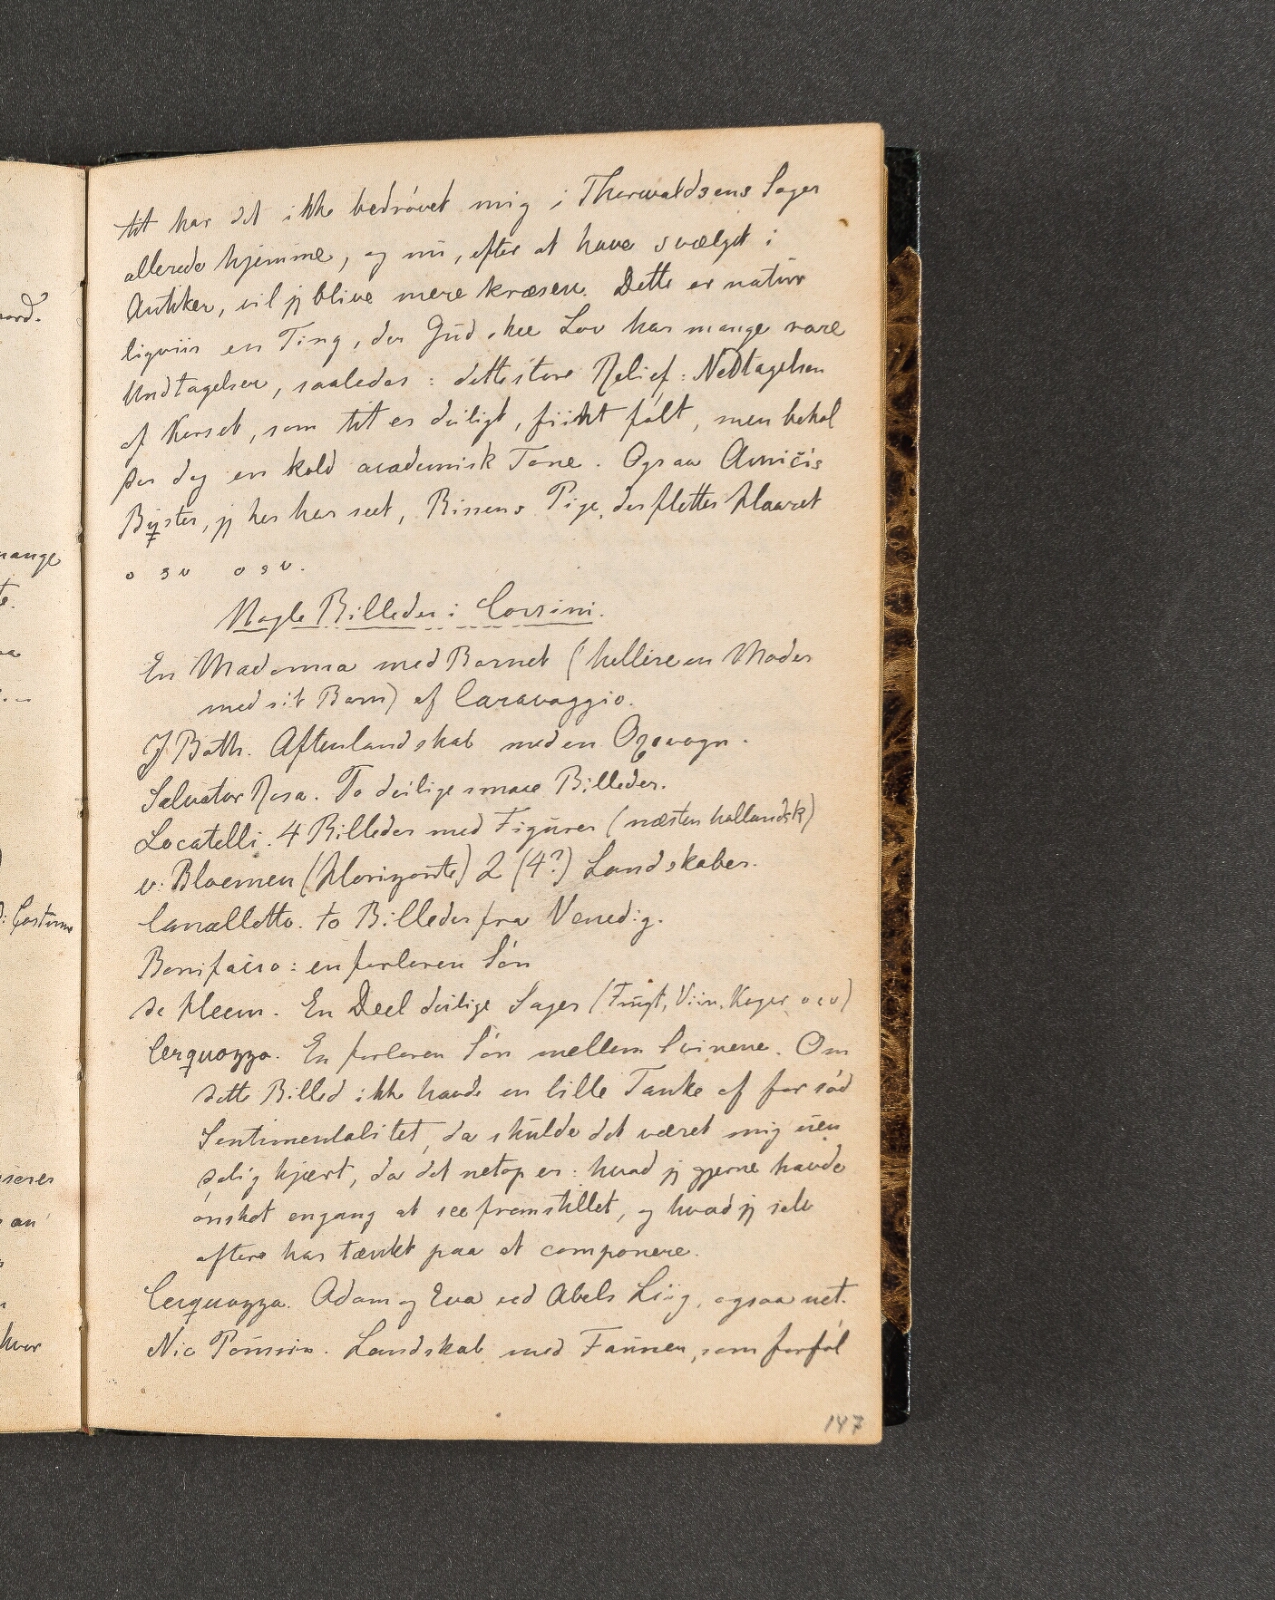 tit har det ikke bedrövet mig i Thorwaldsens Sager
allerede hjemme, og nu, efter at have svælget i
Antiker, vil jeg blive mere kræsen. Dette er natur
ligviis en Ting, der Gud skee Lov har mange rare
Undtagelser, saaledes: dette store Relief: Nedtagelsen
af Korset, som tit er deiligt, friskt fölt, men behol
der dog en kold academisk Tone. Ogsaa
Byster, jeg her har seet, Bissens Pige, der fletter Haaret
o s v o s v.
Nogle Billeder i Corsini.
En Madonna med Barnet (hellere en Moder
med sit Barn) af Caravaggio.
J. Both. Aftenlandskab med en Oxevogn.
Salvator Rosa. To deilige smaae Billeder.
Locatelli. 4 Billeder med Figurer (næsten hollandsk)
v. Bloemen (Horizonte) 2 (4?) Landskaber.
Canalletto. to Billeder fra Venedig.
Bonifacio: en forloren Sön
de Heem. En Deel deilige Sager (Frugt, Viin, Kager o s v)
Cerquozzo. En forloren Sön mellem Svinene. Om
dette Billed ikke havde en lille Tanke af for söd
Sentimentalitet, da skulde det været mig uen
delig kjært, da det netop er: hvad jeg gjerne havde
önsket engang at see fremstillet, og hvad jeg selv
oftere har tænkt paa at componere.
Cerquozzo. Adam og Eva ved Abels Liig, ogsaa net.
Nic Poussin. Landskab med Faunen, som forföl
147